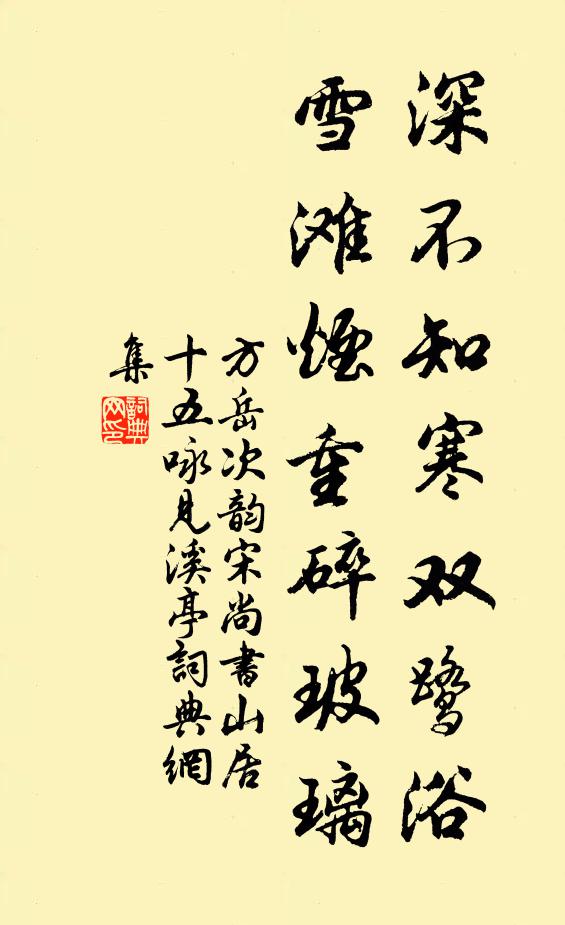 深不知寒双鹭浴
雪滩煙重碎玻璃
方岳次韵宋尚書山居
十五咏見溪亭詞典網
集
詞典
网印